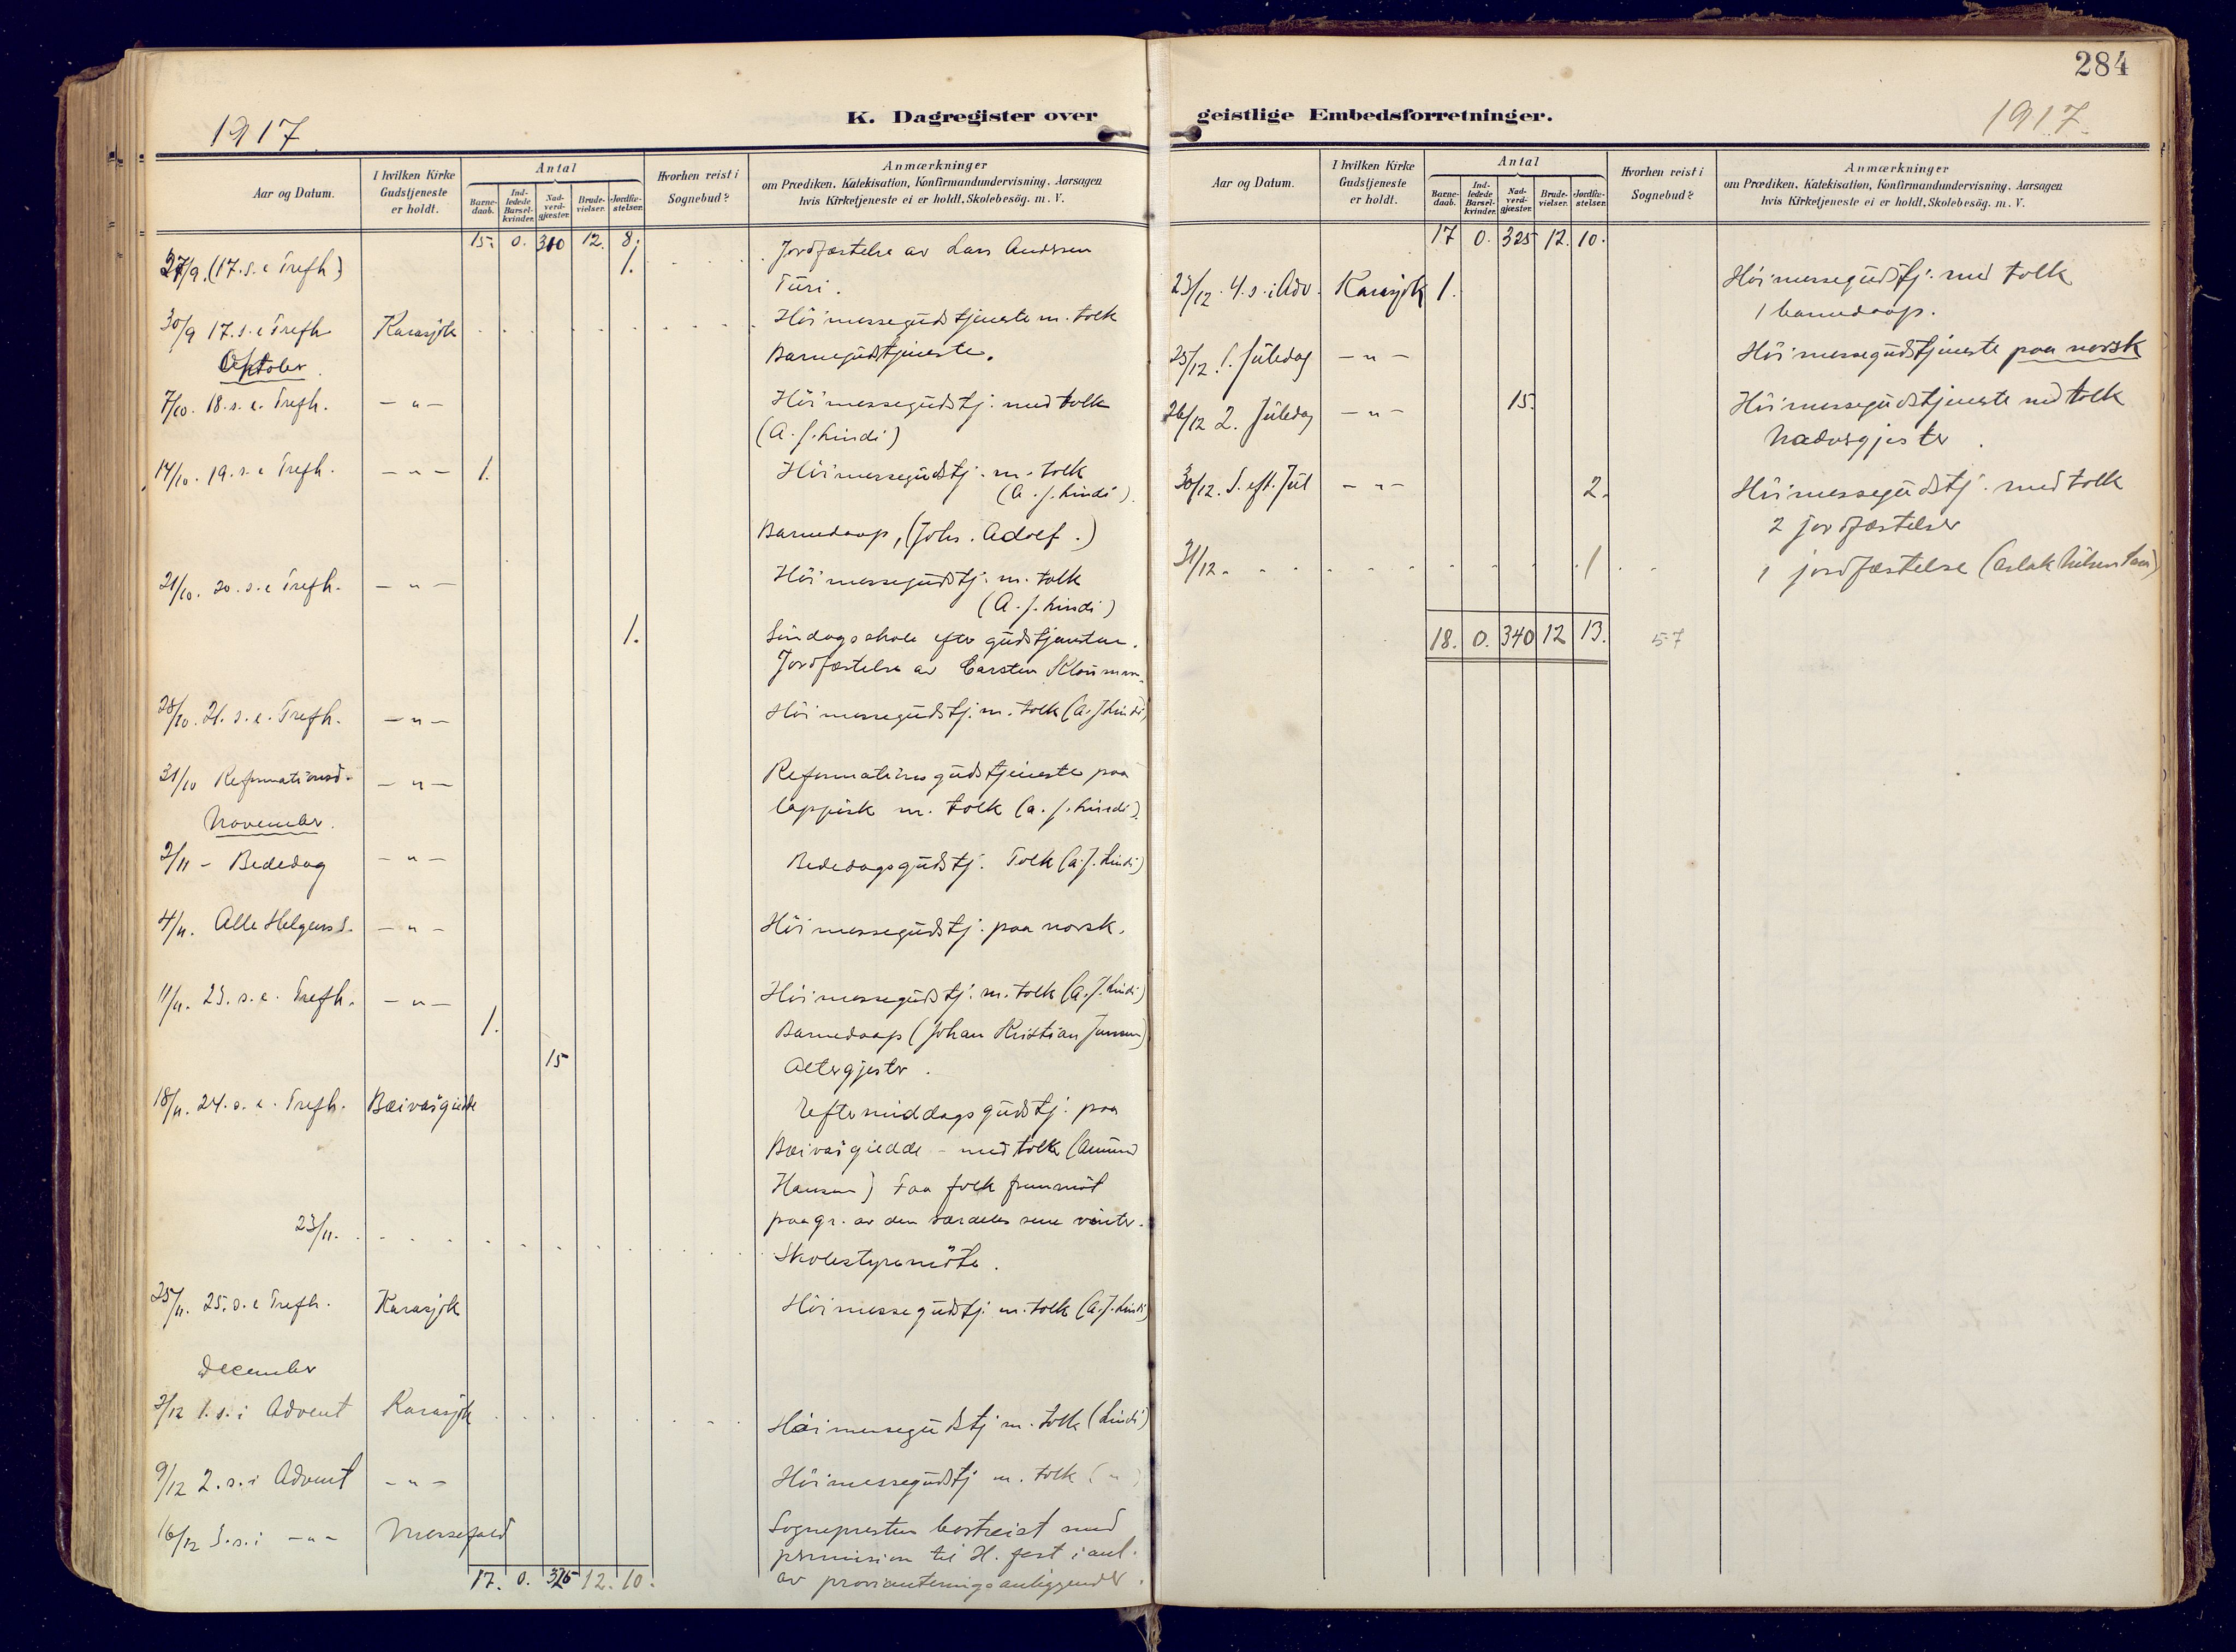 284
1917
K. Dagregister over
geistlige Embedsforretninger.
1917
Aar og Datum.
I hvilken Kirke Gudstjeneste er holdt.
Antal
Barne-daab.
Ind-ledede Barsel-kvinder.
Nad-verd-gjæster.
Brude-vielser.
Jordfæ-stelser.
Hvorhen reist i Sognebud?
Anmærkninger
om Prædiken, Katekisation, Konfirmandundervisning, Aarsagen
hvis Kirketjeneste ei er holdt, Skolebesøg. m. V.
15. 0. 310 12. 8.
27/9. (17. s. e Trefh.) 1. Jordfæstelse av Lars Andersen
Turi.
30/9 17. s. e Trefh Karasjok Höimessegudstjeneste m. tolk
Barnegudstjeneste.
Oktober
7/10. 18. s. e. Trefh. -"- Höimessegudstj. med tolk
(A. J. Lindi)
14/10. 19. s. e Trefh. -"- 1. Höimessegudstj. m. tolk
(A. J. Lindi).
Barnedaap, (Johs. Adolf.)
21/10. 20. s. e Trefh. -"- Höimessegudstj. m. tolk
(A. J. Lindi)
1. Söndagsskole efter gudstjensten.
Jordfæstelse av Carsten
28/10. 21. s. e. Trefh. -"- Höimessegudstj. m. tolk (A. J. Lindi)
31/10 Reformationsd. -"- Reformationsgudstjeneste paa
lappisk m. tolk (A. J. Lindi).
November.
2/11 - Bededag -"- Bededagsgudstj. Tolk (A. J. Lindi)
4/11. Alle Helgens s. -"- Höimessegudstj. paa norsk.
11/11. 23. s. e. Trefh. -"- Höimessegudstj. m. tolk (A. J. Lindi)
1. Barnedaap (Johan Kristian Jensen)
15 Altergjester.
18/11. 24. s. e. Trefh. Bæivasgiedde Eftermiddagsgudstj. paa
Bæivasgiedde - med tolk (Amund
Hansen) Faa folk fremmöt
paa gr. av den særdeles sene vinter.
23/11. Skolestyremöte.
25/11. 25. s. e Trefh. Karasjok Höimessegudstj. m. tolk (A. J. Lindi)
December
2/12 1. s. i Advent Karasjok Höimessegudstj m. tolk (Lindi)
9/12 2. s. i Advent -"- Höimessegudstj m. tolk (")
16/12 3. s. i -"- Messefald Sognepresten bortreist med
permision til H. fest i anl.
av provianteringsanliggender.
17. 0. 325 12. 10.
Aar og Datum.
I hvilken Kirke Gudstjeneste er holdt.
Antal
Barne-daab.
Ind-ledede Barsel-kvinder.
Nad-verd-gjæster.
Brude-vielser.
Jordfæ-stelser.
Hvorhen reist i Sognebud?
Anmærkninger
om Prædiken, Katekisation, Konfirmandundervisning, Aarsagen
hvis Kirketjeneste ei er holdt, Skolebesøg. m. V.
17 0. 325 12. 10.
23/12. 4. s. i Adv. Karasjok 1. Höimessegudstj. med tolk
1 barnedaap.
25/12. 1. Juledag -"- Höimessegudstjeneste paa norsk
26/12 2. Juledag -"- 15. Höimessegudstjeneste med tolk
Nadvergjester.
30/12. S. eft. Jul -"- 2. Höimessegudstj. med tolk
2 jordfæstelser
31/12. 1 1 jordfæstelse (Aslak Nilsen
18. 0. 340 12 13. 57